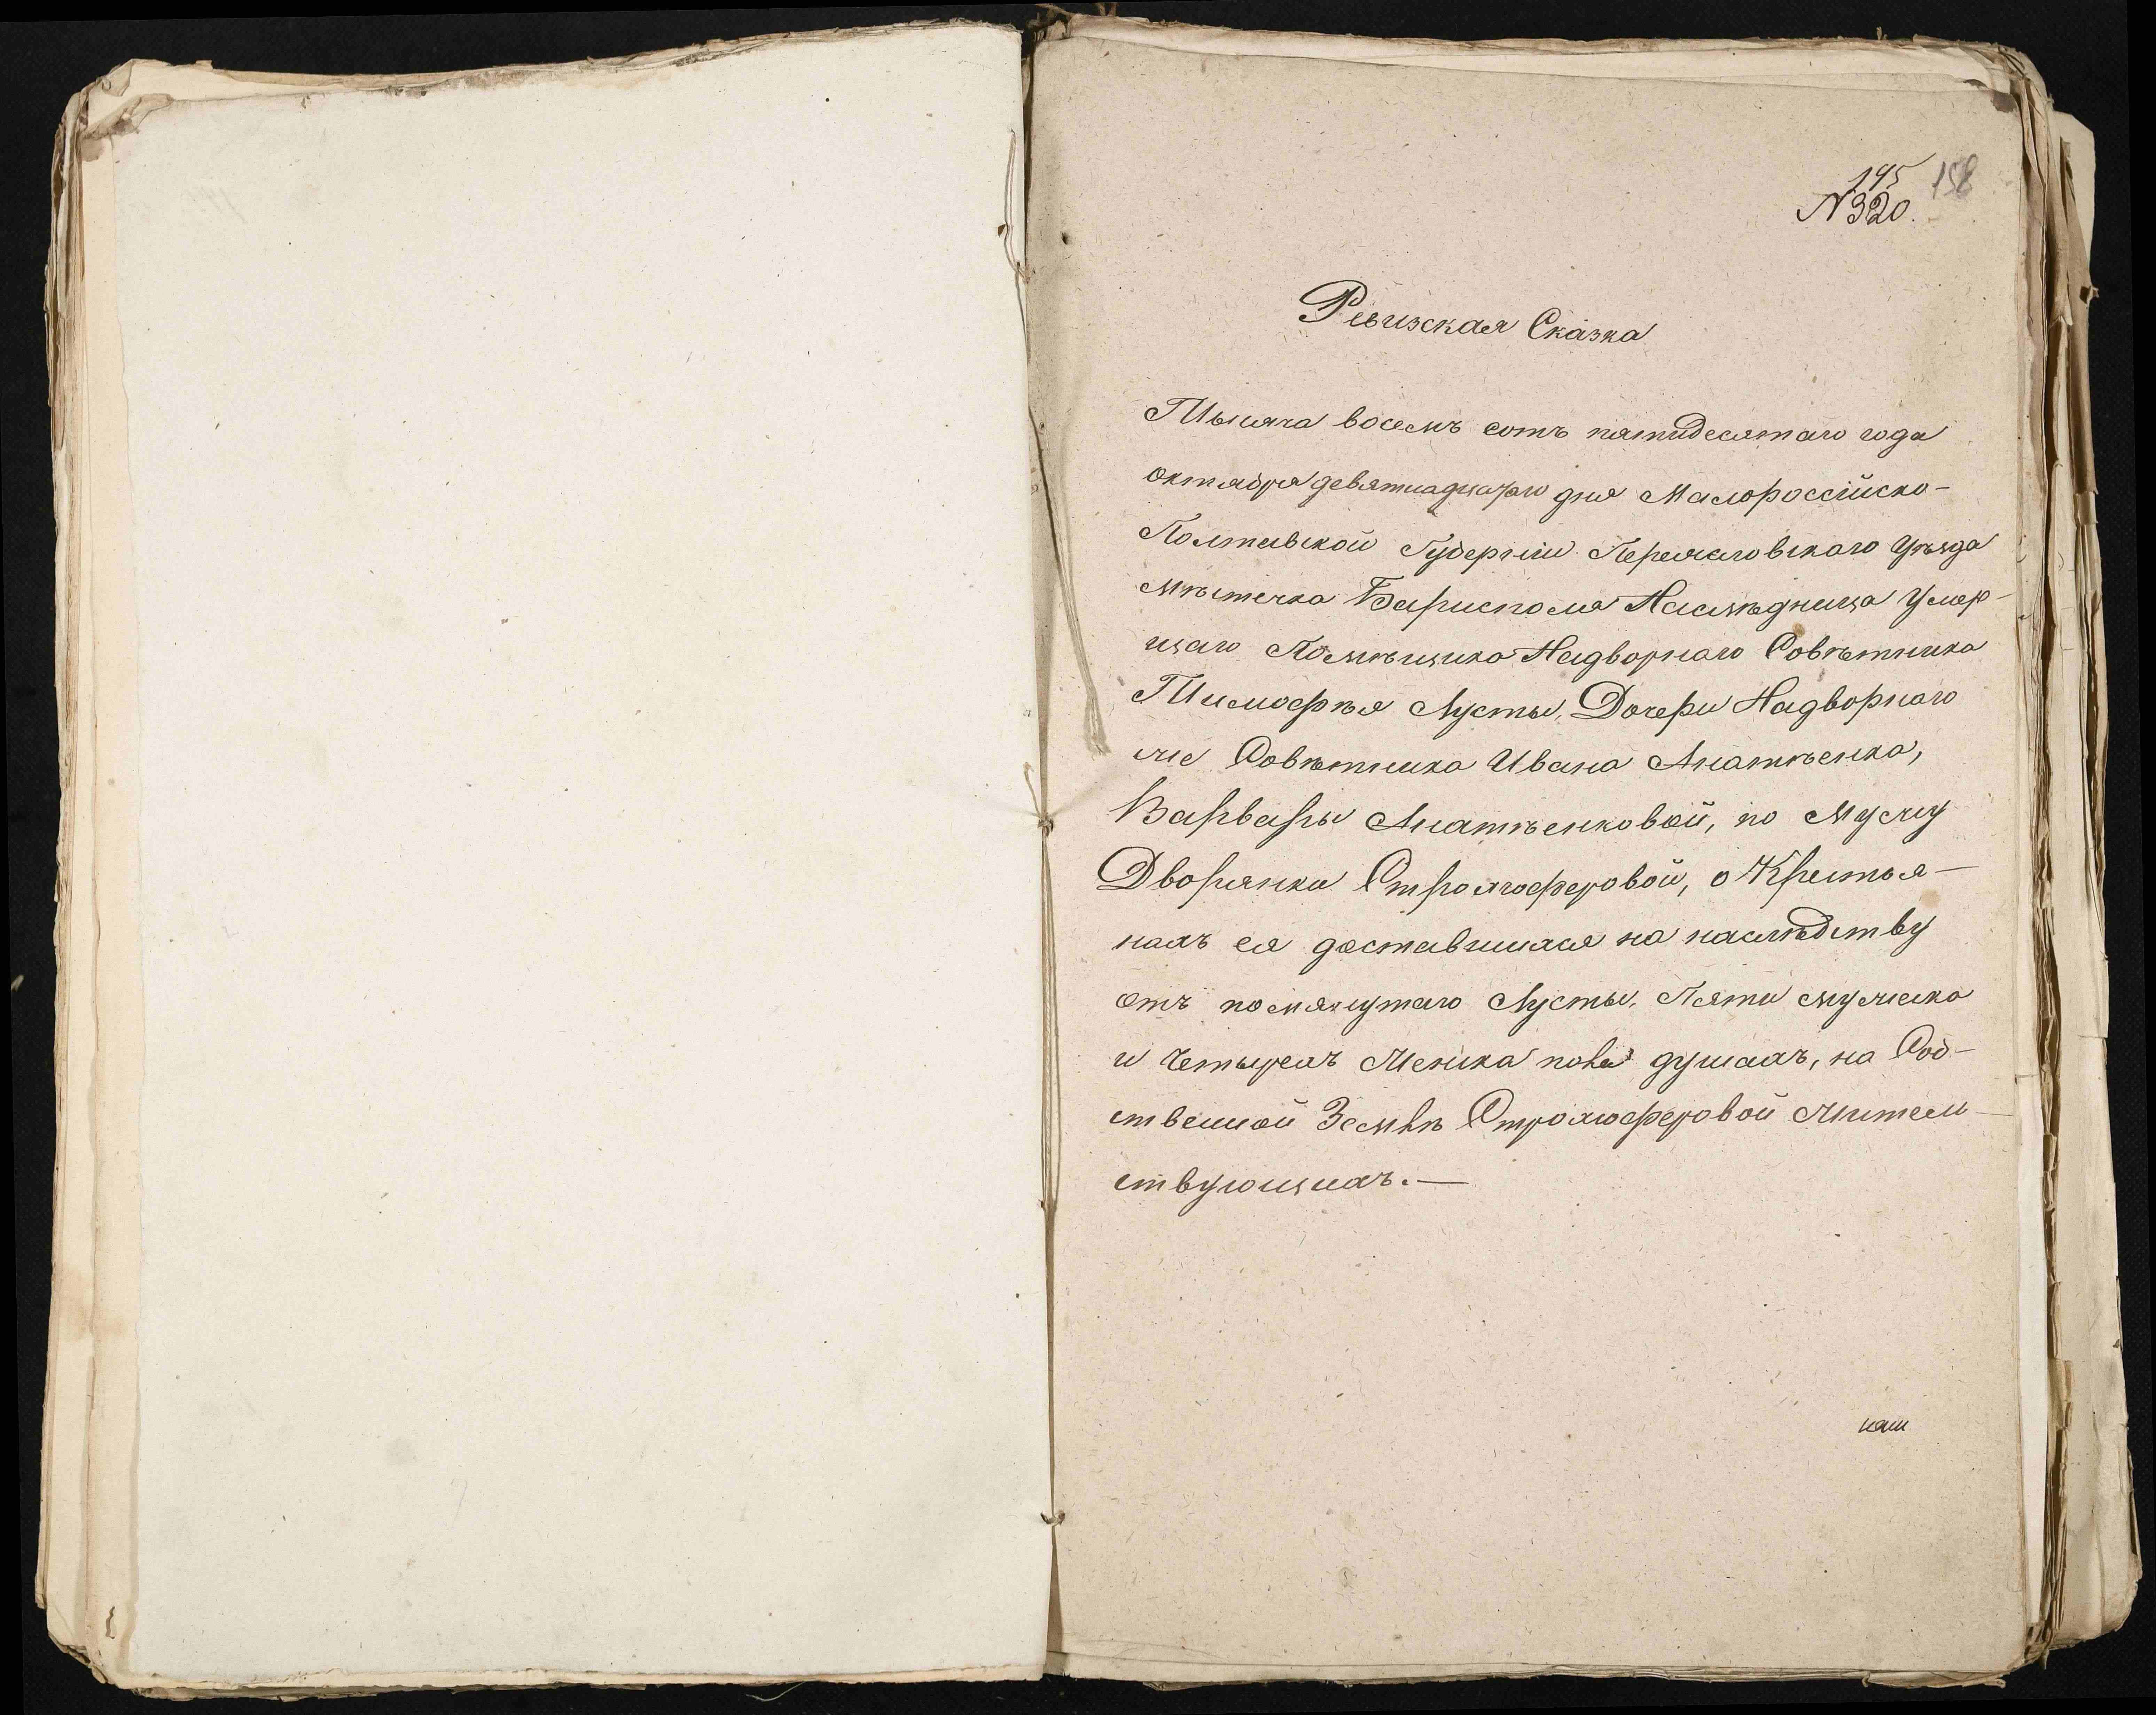 195 158
№320.
Ревизская Сказка
Тысяча восемь сотъ пятидесятаго года
Октября девятнадцатаго дня Малороссійско-
Полтавской Губерніи Переяславскаго Уѣзда
Мѣстечка Барисполя Наслѣдница Умер-
щаго Помѣщика Надворнаго Совѣтника
Тимофѣя Лусты, Дочери Надворнаго
же Совѣтника Ивана
Варвары по Мужу
Дворянки о Крестья-
нахъ ея доставшихся на наслѣдству
отъ помянутаго Лусты, Пяти мужеска
и Четырехъ Женска пола душахъ, на Соб-
ственной Землѣ жител-
ствующихъ.—